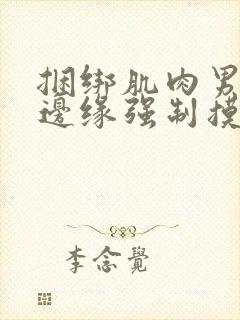 捆绑肌肉男
邊缘强制摸
李念覺